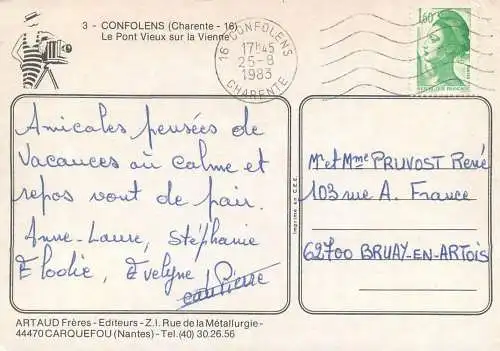 3 - CONFOLENS (Charente - 16)
Le Pont Vieux sur la Vienne
16 CONFOLENS
17H45
25-8
1983
CHARENTE
1,60
REPUBLIQUE FRANCAISE
Amicales pensées de
vacances où calme et
repos vont de pair.
Anne-Laure, Stéphanie
Elodie, Evelyne Jean Pierre
Imprimé en C.E.E.
Mr et Mme PRUVOST René
103 rue A. France
62700 BRUAY-EN-ARTOIS
ARTAUD Frères - Editeurs - Z.I. Rue de la Métallurgie-
44470 CARQUEFOU (Nantes) - Tel.(40) 30.26.56